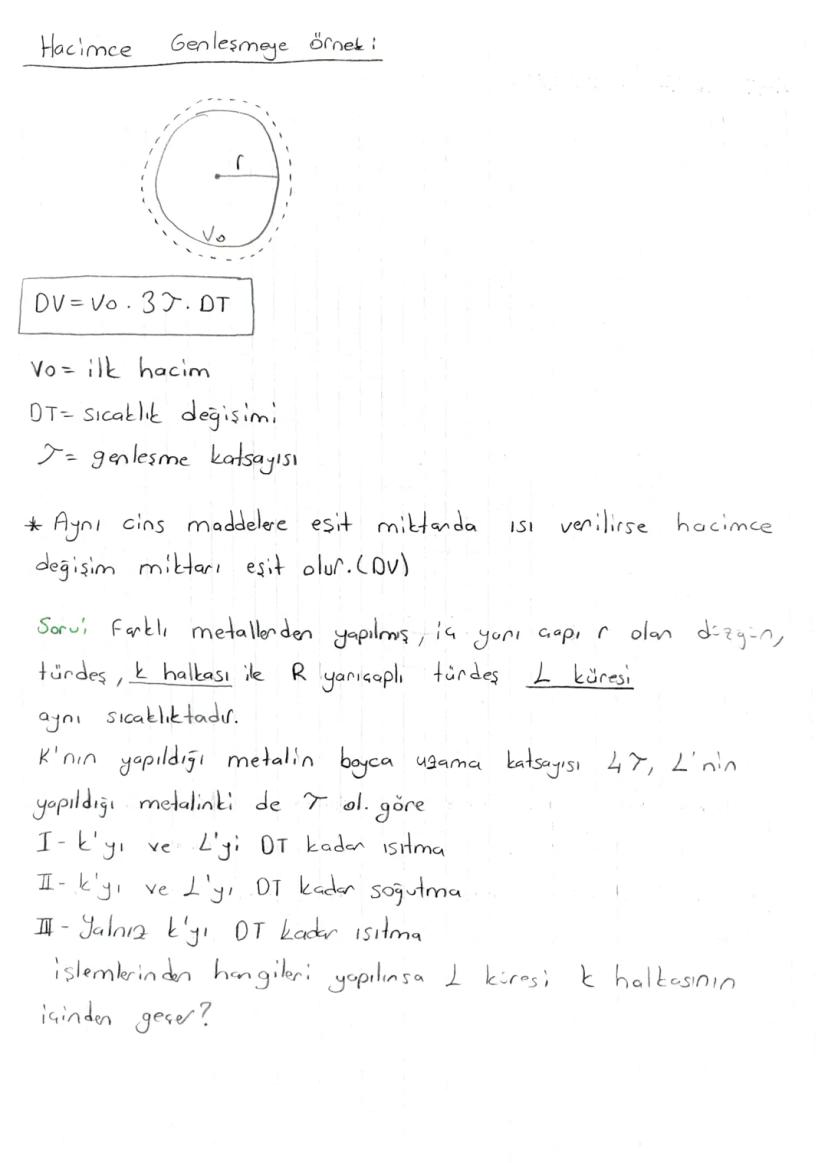 Hacimce Genleşmeye örnek:
r
Vo
DV = Vo . 3λ . DT
Vo = ilk hacim
DT = sıcaklık değişimi
λ = genleşme katsayısı
* Aynı cins maddelere eşit miktarda ısı verilirse hacimce
değişim miktarı eşit olur. (DV)
Soru: Farklı metallerden yapılmış, iç yarı çapı r olan düzgün,
türdeş, k halkası ile R yarıçaplı türdeş L küresi
aynı sıcaklıktadır.
K'nın yapıldığı metalin boyca uzama katsayısı 4λ, L'nin
yapıldığı metalinki de λ ol. göre
I - k'yı ve L'yi DT kadar ısıtma
II - k'yı ve L'yı DT kadar soğutma
III - Yalnız k'yı DT kadar ısıtma
işlemlerinden hangileri yapılırsa L küresi k halkasının
içinden geçer?